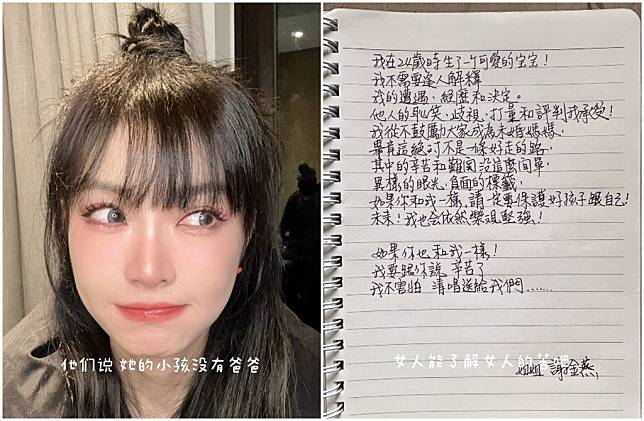 他们说 她的小孩没有爸爸
我在24歲時生了一个可愛的宝宝！
我不需要逢人解釋
我的遭遇，經歷和決定。
他人的耻笑、歧視、打量和評判我承受！
我從不鼓勵大家成為未婚媽媽，
畢竟這絕对不是一條好走的路，
其中的辛苦和難関没這麼简單，
異樣的眼光，負面的標籤，
如果你和我一樣，請一定要保護好孩子跟自己！
未來！我也会依然樂観堅強！
如果你也和我一樣！
我要跟你說 辛苦了
我不害怕 清唱送給我們……
女人能了解女人的苦吧
姐姐 謝金燕